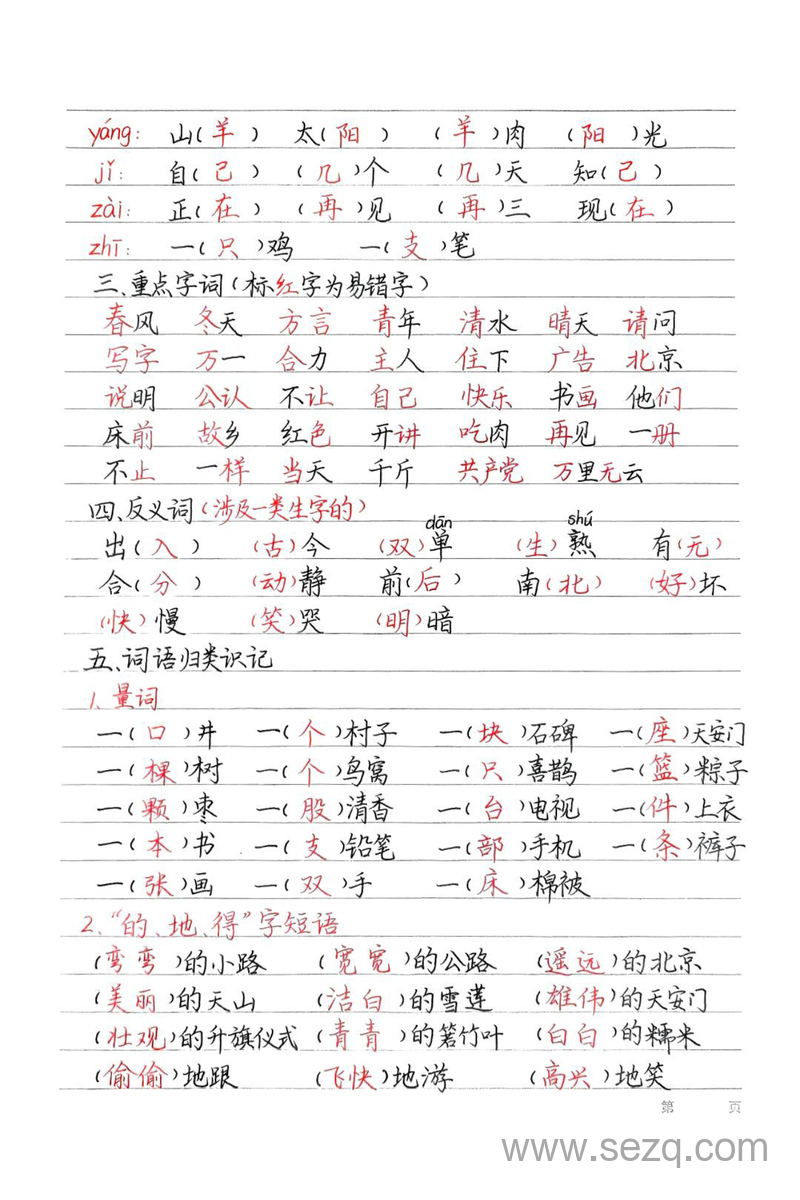 yáng: 山(羊) 太(阳) (羊)肉 (阳)光
jǐ: 自(己) (几)个 (几)天 知(己)
zài: 正(在) (再)见 (再)三 现(在)
zhī: 一(只)鸡 一(支)笔
三、重点字词(标红字为易错字)
春风 冬天 方言 青年 清水 晴天 请问
写字 万一 合力 主人 住下 广告 北京
说明 公认 不让 自己 快乐 书画 他们
床前 故乡 红色 开讲 吃肉 再见 一册
不止 一样 当天 千斤 共产党 万里无云
四、反义词(涉及一类生字的)
dān shú
出(入) (古)今 (双)单 (生)熟 有(无)
合(分) (动)静 前(后) 南(北) (好)坏
(快)慢 (笑)哭 (明)暗
五、词语归类识记
1.量词
一(口)井 一(个)村子 一(块)石碑 一(座)天安门
一(棵)树 一(个)鸟窝 一(只)喜鹊 一(篮)粽子
一(颗)枣 一(股)清香 一(台)电视 一(件)上衣
一(本)书 一(支)铅笔 一(部)手机 一(条)裤子
一(张)画 一(双)手 一(床)棉被
2.“的、地、得”字短语
(弯弯)的小路 (宽宽)的公路 (遥远)的北京
(美丽)的天山 (洁白)的雪莲 (雄伟)的天安门
(壮观)的升旗仪式 (青青)的箬竹叶 (白白)的糯米
(偷偷)地跟 (飞快)地游 (高兴)地笑
第 页
www.sezq.com